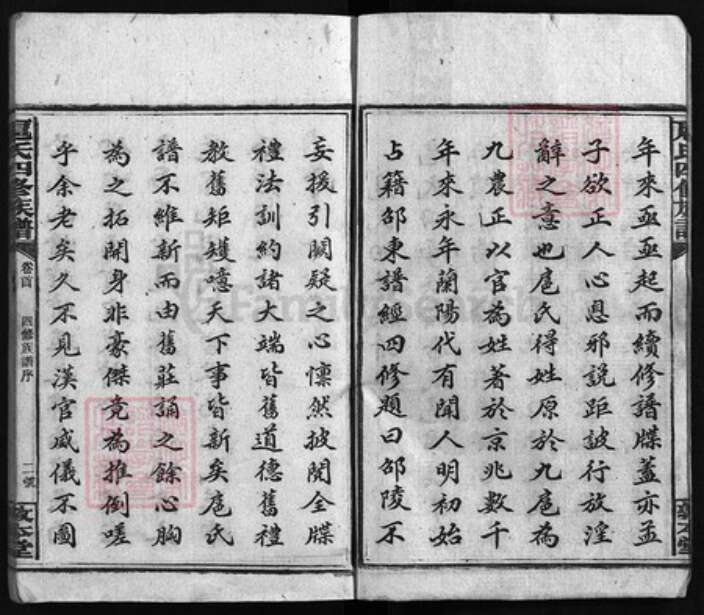 年來亟亟起而續修譜牒蓋亦孟
子欲正人心息邪說距詖行放淫
辭之意也扈氏得姓原於九扈為
九農正以官為姓著於京兆數千
年來永年蘭陽代有聞人明初始
占籍邵東譜經四修題曰邵陵不
妄援引闕疑之心懍然披閱全牒
禮法訓約諸大端皆舊道德舊禮
教舊矩矱噫天下事皆新矣扈氏
譜不維新而由舊莊誦之餘心胸
為之拓開身非豪傑竟為推倒嗟
乎余老矣久不見漢官威儀不圖
扈氏四修族譜
卷首
四修族譜序
二號
敦本堂
FamilySearch